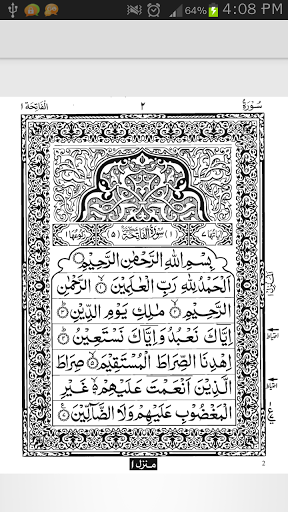 64% 4:08 PM
سُوْرَةُ ٢ اَلْفَاتِحَة ١
(١) سُوْرَةُ الْفَاتِحَةِ (٥)
بِسْمِ اللهِ الرَّحْمٰنِ الرَّحِيْمِ
اَلْحَمْدُ لِلّٰهِ رَبِّ الْعٰلَمِيْنَ ۙ﴿١﴾ الرَّحْمٰنِ
الرَّحِيْمِ ۙ﴿٢﴾ مٰلِكِ يَوْمِ الدِّيْنِ ؕ﴿٣﴾
اِيَّاكَ نَعْبُدُ وَاِيَّاكَ نَسْتَعِيْنُ ؕ﴿٤﴾
اِهْدِنَا الصِّرَاطَ الْمُسْتَقِيْمَ ۙ﴿٥﴾ صِرَاطَ
الَّذِيْنَ اَنْعَمْتَ عَلَيْهِمْ ۙ﴿٦﴾ غَيْرِ
الْمَغْضُوْبِ عَلَيْهِمْ وَلَا الضَّآلِّيْنَ ﴿٧﴾
منزل ١
2